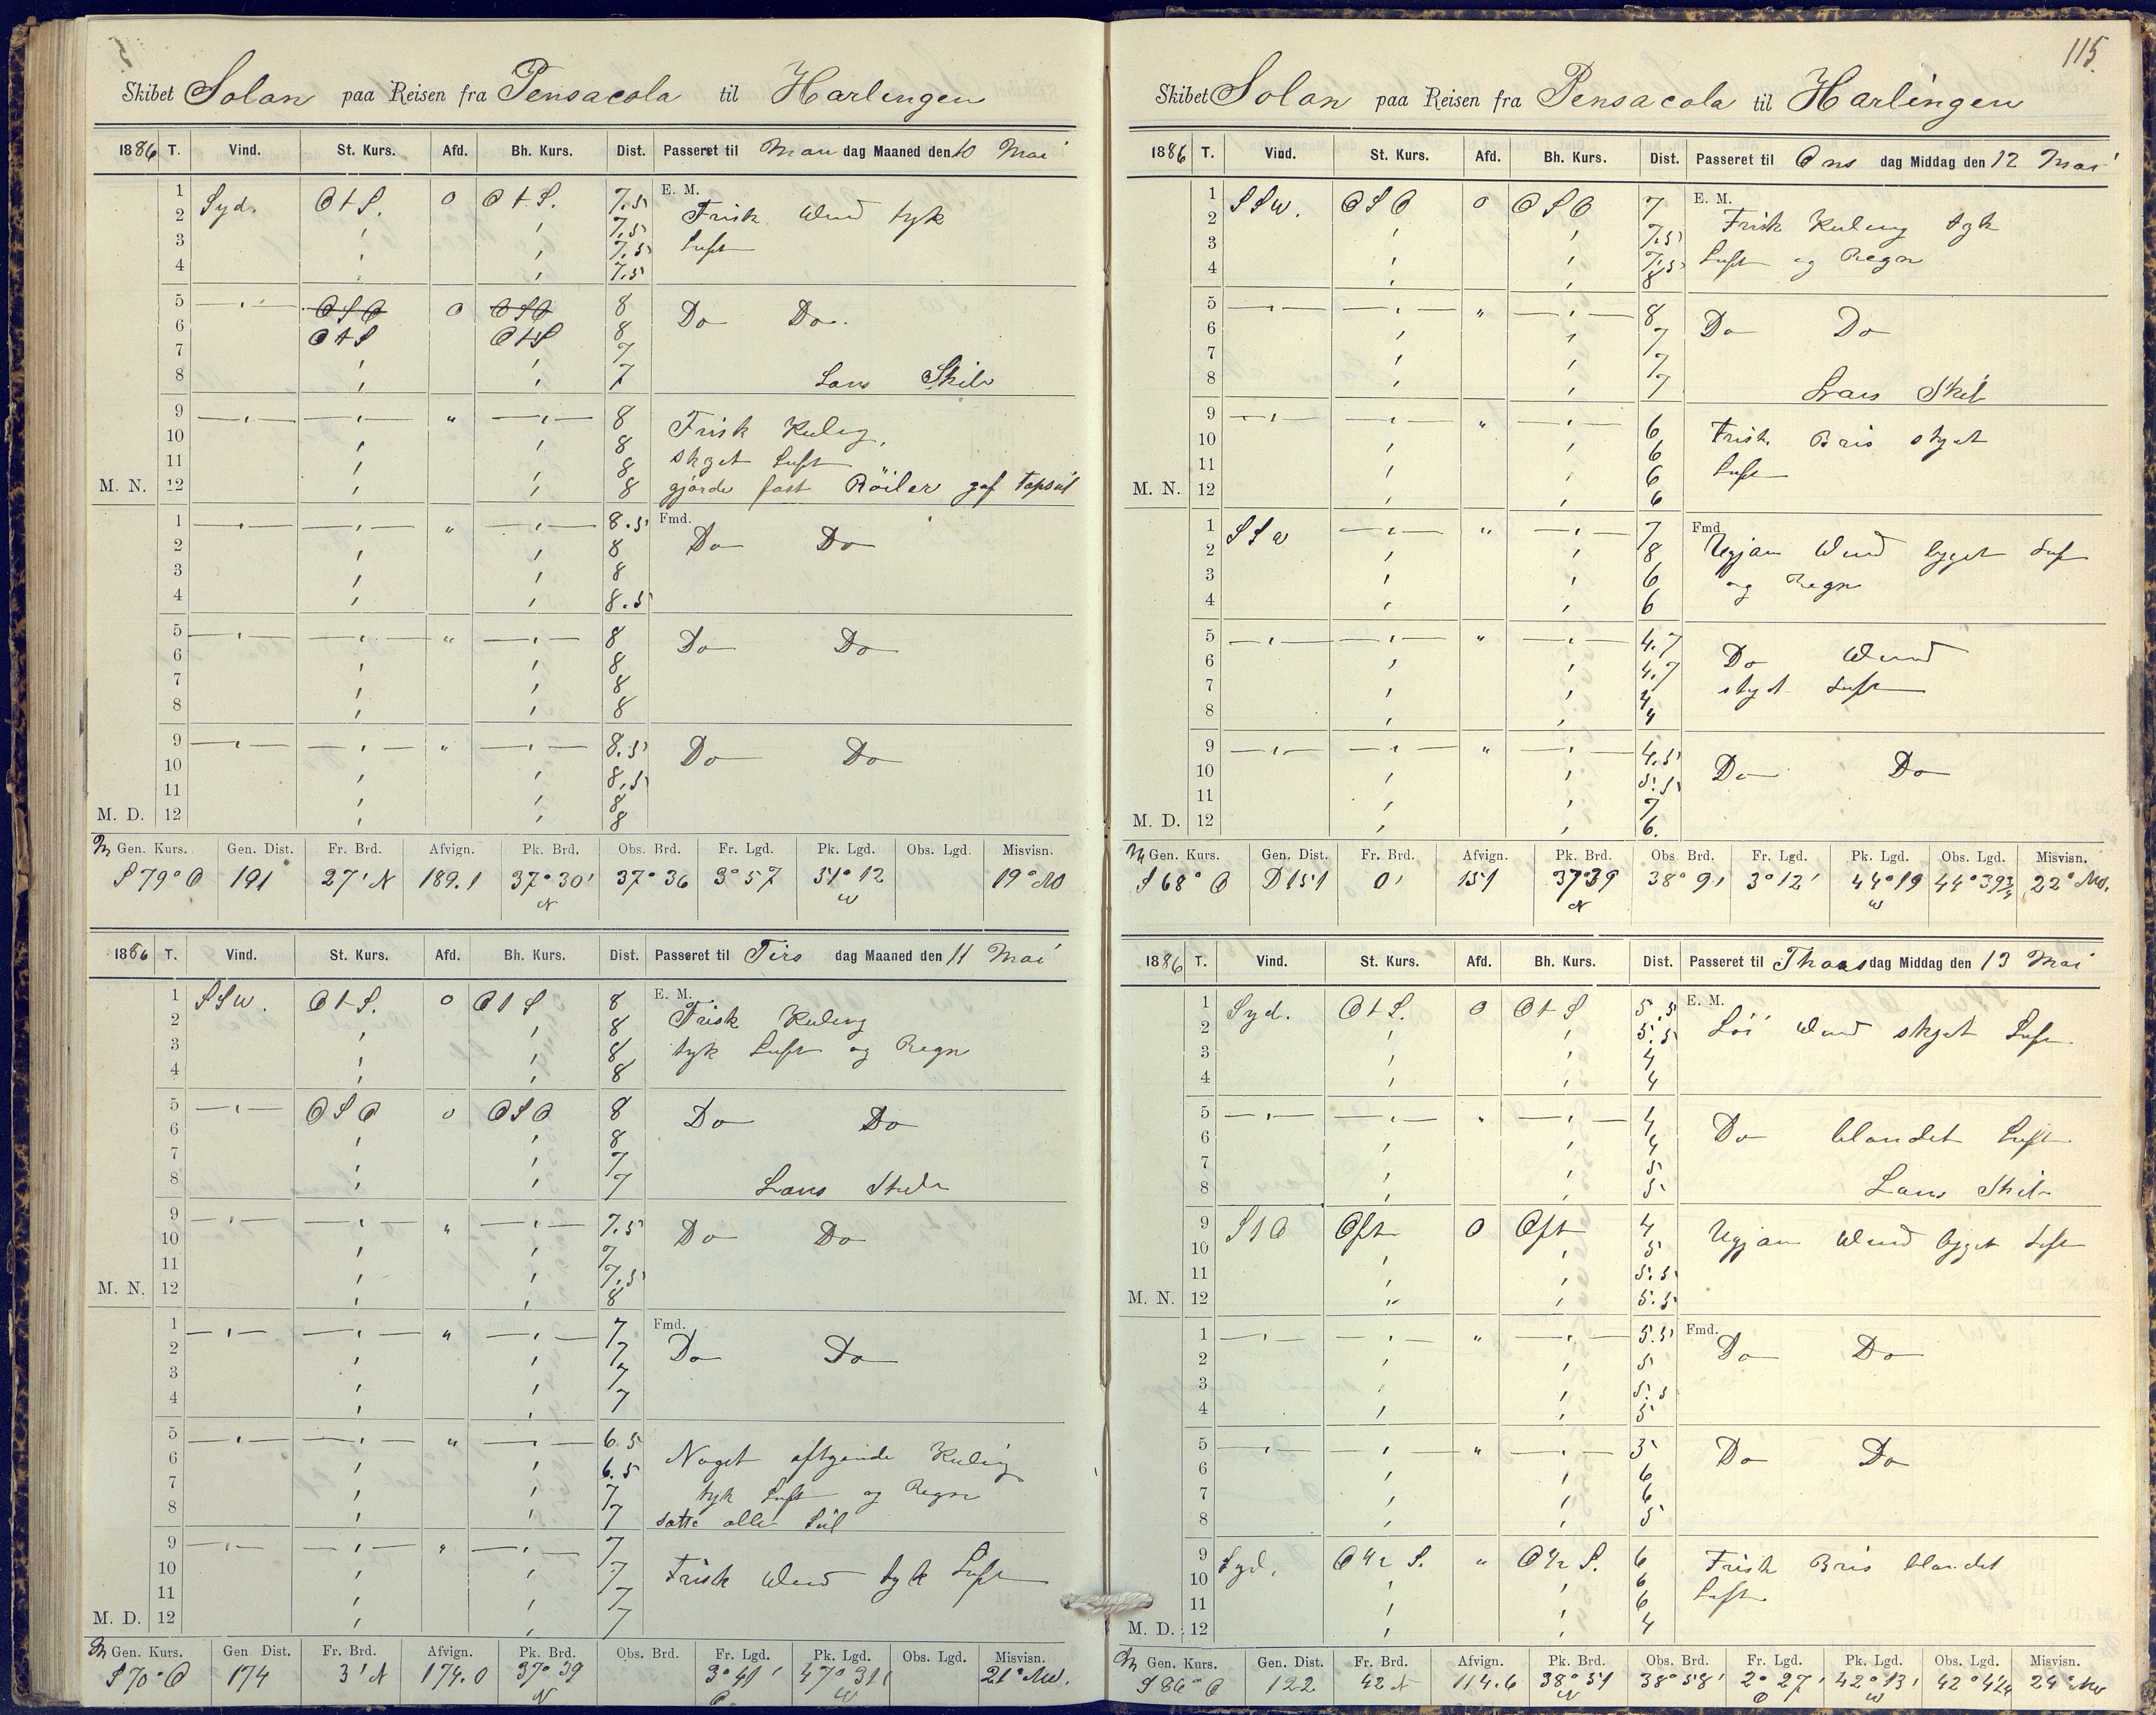 Skibet Solan paa Reisen fra Pensacola til Harlingen
1886 T. Vind. St. Kurs. Afd. Bh. Kurs. Dist. Passeret til Man dag Maaned den 10 Mai
1 Syd. O t S. 0 O t S. 7.5 E. M.
2 ' ' 7.5 Frisk Wind tyk
3 ' ' 7.5 Luft
4 ' ' 7.5
5 — " — OSO 0 OSO 8 Do Do.
6 O t S O t S 8
7 ' ' 7
8 ' ' 7 Lans Skib
9 — " — — " — " — " — 8 Frisk Kuling,
10 ' ' 8 skyet Luft
11 ' ' 8
M. N. 12 ' ' 8 gjorde fast Röiler gaf topseil
1 — " — — " — " — " — 8.5 Fmd.
2 ' ' 8 Do Do
3 ' ' 8
4 ' ' 8.5
5 — " — — " — " — " — 8 Do Do
6 ' ' 8
7 ' ' 8
8 ' ' 8
9 — " — — " — " — " — 8.5 Do Do
10 ' ' 8.5
11 ' ' 8
M. D. 12 ' ' 8
M Gen. Kurs. Gen. Dist. Fr. Brd. Afvign. Pk. Brd. Obs. Brd. Fr. Lgd. Pk. Lgd. Obs. Lgd. Misvisn.
S 79° O 191 27' N 189.1 37° 30' N 37° 36 3° 57 51° 12 W 19° NW
1886 T. Vind. St. Kurs. Afd. Bh. Kurs. Dist. Passeret til Tirs dag Maaned den 11 Mai
1 SSW. O t S. 0 O t S 8 E. M.
2 ' ' 8 Frisk Kuling
3 ' ' 8 tyk Luft og Regn
4 ' ' 8
5 — " — OSO 0 OSO 8 Do Do
6 ' ' 8
7 ' ' 7
8 ' ' 7 Lans Skib
9 — " — — " — " — " — 7.5 Do Do
10 ' ' 7
11 ' ' 7.5
M. N. 12 ' ' 8
1 — " — — " — " — " — 7 Fmd.
2 ' ' 7 Do Do
3 ' ' 7
4 ' ' 7
5 — " — — " — " — " — 6.5 Noget aftgende Kuling
6 ' ' 6.5
7 ' ' 7 tyk Luft og Regn
8 ' ' 7 satte alle Seil
9 — " — — " — " — " — 7
10 ' ' 7 Frisk Wind tyk Luft
11 ' ' 7
M. D. 12 ' ' 7
M Gen. Kurs. Gen Dist. Fr. Brd. Afvign. Pk. Brd. Obs. Brd. Fr. Lgd. Pk. Lgd. Obs. Lgd. Misvisn.
S 70° O 174 3' N 174.0 37° 39 N 3° 41' O 47° 31' W 21° NW.
115.
Skibet Solan paa Reisen fra Pensacola til Harlingen
1886 T. Vind. St. Kurs. Afd. Bh. Kurs. Dist. Passeret til Ons dag Middag den 12 Mai
1 SSW. OSO 0 OSO 7 E. M.
2 ' ' 7.5 Frisk Kuling tyk
3 ' ' 7.5 Luft og Regn
4 ' ' 8
5 — " — — " — " — " — 8 Do Do
6 ' ' 7
7 ' ' 7
8 ' ' 7 Lans Skib
9 — " — — " — " — " — 6 Frisk Bris skyet
10 ' ' 6
11 ' ' 6 Luft
M. N. 12 ' ' 6
1 SSW — " — " — " — 7 Fmd
2 ' ' 8 Ugjam Wind bygget Luft
3 ' ' 6 og Regn
4 ' ' 6
5 — " — — " — " — " — 4.7 Do Wind
6 ' ' 4.7
7 ' ' 4 skyet Luft
8 ' ' 4
9 — " — — " — " — " — 4.5 Do Do
10 ' ' 5.5
11 ' ' 7
M. D. 12 ' ' 6.
M Gen. Kurs. Gen. Dist. Fr. Brd. Afvign. Pk. Brd. Obs. Brd. Fr. Lgd. Pk. Lgd. Obs. Lgd. Misvisn.
S 68° O D 151 0' 151 37° 39 N 38° 9' 3° 12' 44° 19 W 44° 39 3/4 22° NW.
1886 T. Vind. St. Kurs. Afd. Bh. Kurs. Dist. Passeret til Thors dag Middag den 13 Mai
1 Syd. O t S. 0 O t S 5.5 E. M.
2 ' ' 5.5 Löi Wind skyet Luft
3 ' ' 4
4 ' ' 4
5 — " — — " — " — " — 4 Do blandet Luft
6 ' ' 4
7 ' ' 5
8 ' ' 5 Lans Skib
9 S t O Ost 0 Ost 4 Ugjam Wind bygget Luft
10 ' ' 5
11 ' ' 5.5
M. N. 12 ' ' 5.5
1 — " — — " — " — " — 5.5 Fmd.
2 ' ' 5 Do Do
3 ' ' 5.5
4 ' ' 5
5 — " — — " — " — " — 5 Do Do
6 ' ' 6
7 ' ' 6
8 ' ' 5
9 Syd. O 1/2 S. " O 1/2 S. 6 Frisk Bris blandet
10 ' ' 6
11 ' ' 6 Luft
M. D. 12 ' ' 4
M Gen. Kurs. Gen. Dist. Fr. Brd. Afvign. Pk. Brd. Obs. Brd. Fr. Lgd. Pk. Lgd. Obs. Lgd. Misvisn.
S 86° O 122 42 N 114.6 38° 51 N 38° 58' 2° 27' O 42° 13' W 42° 42 24° NW